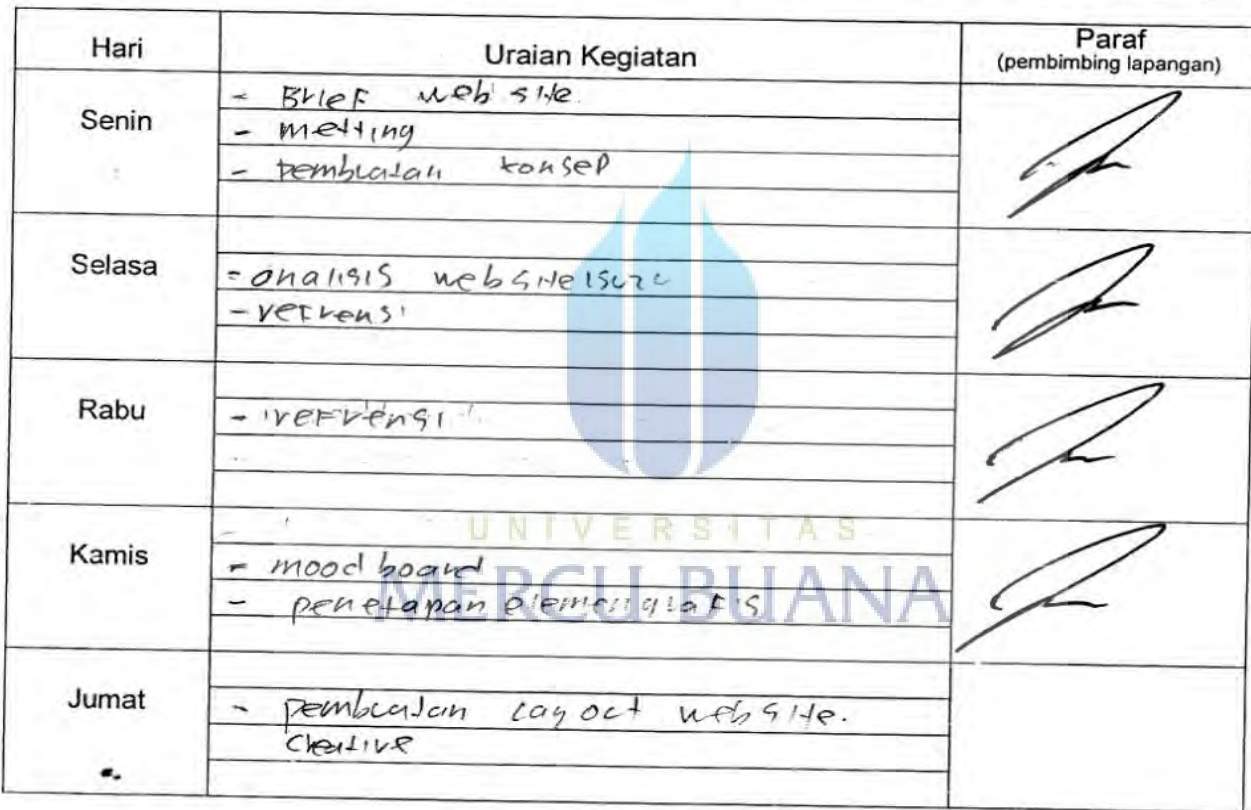 Hari Uraian Kegiatan Paraf
(pembimbing lapangan)
Senin
- Brief web site.
- metting
- pembuatan konsep
Selasa
- analisis website isuzu
- refrensi
Rabu
- refrensi
Kamis
- mood board
- penetapan elemen grafis
UNIVERSITAS
MERCU BUANA
Jumat
- pembuatan layout website.
Creative